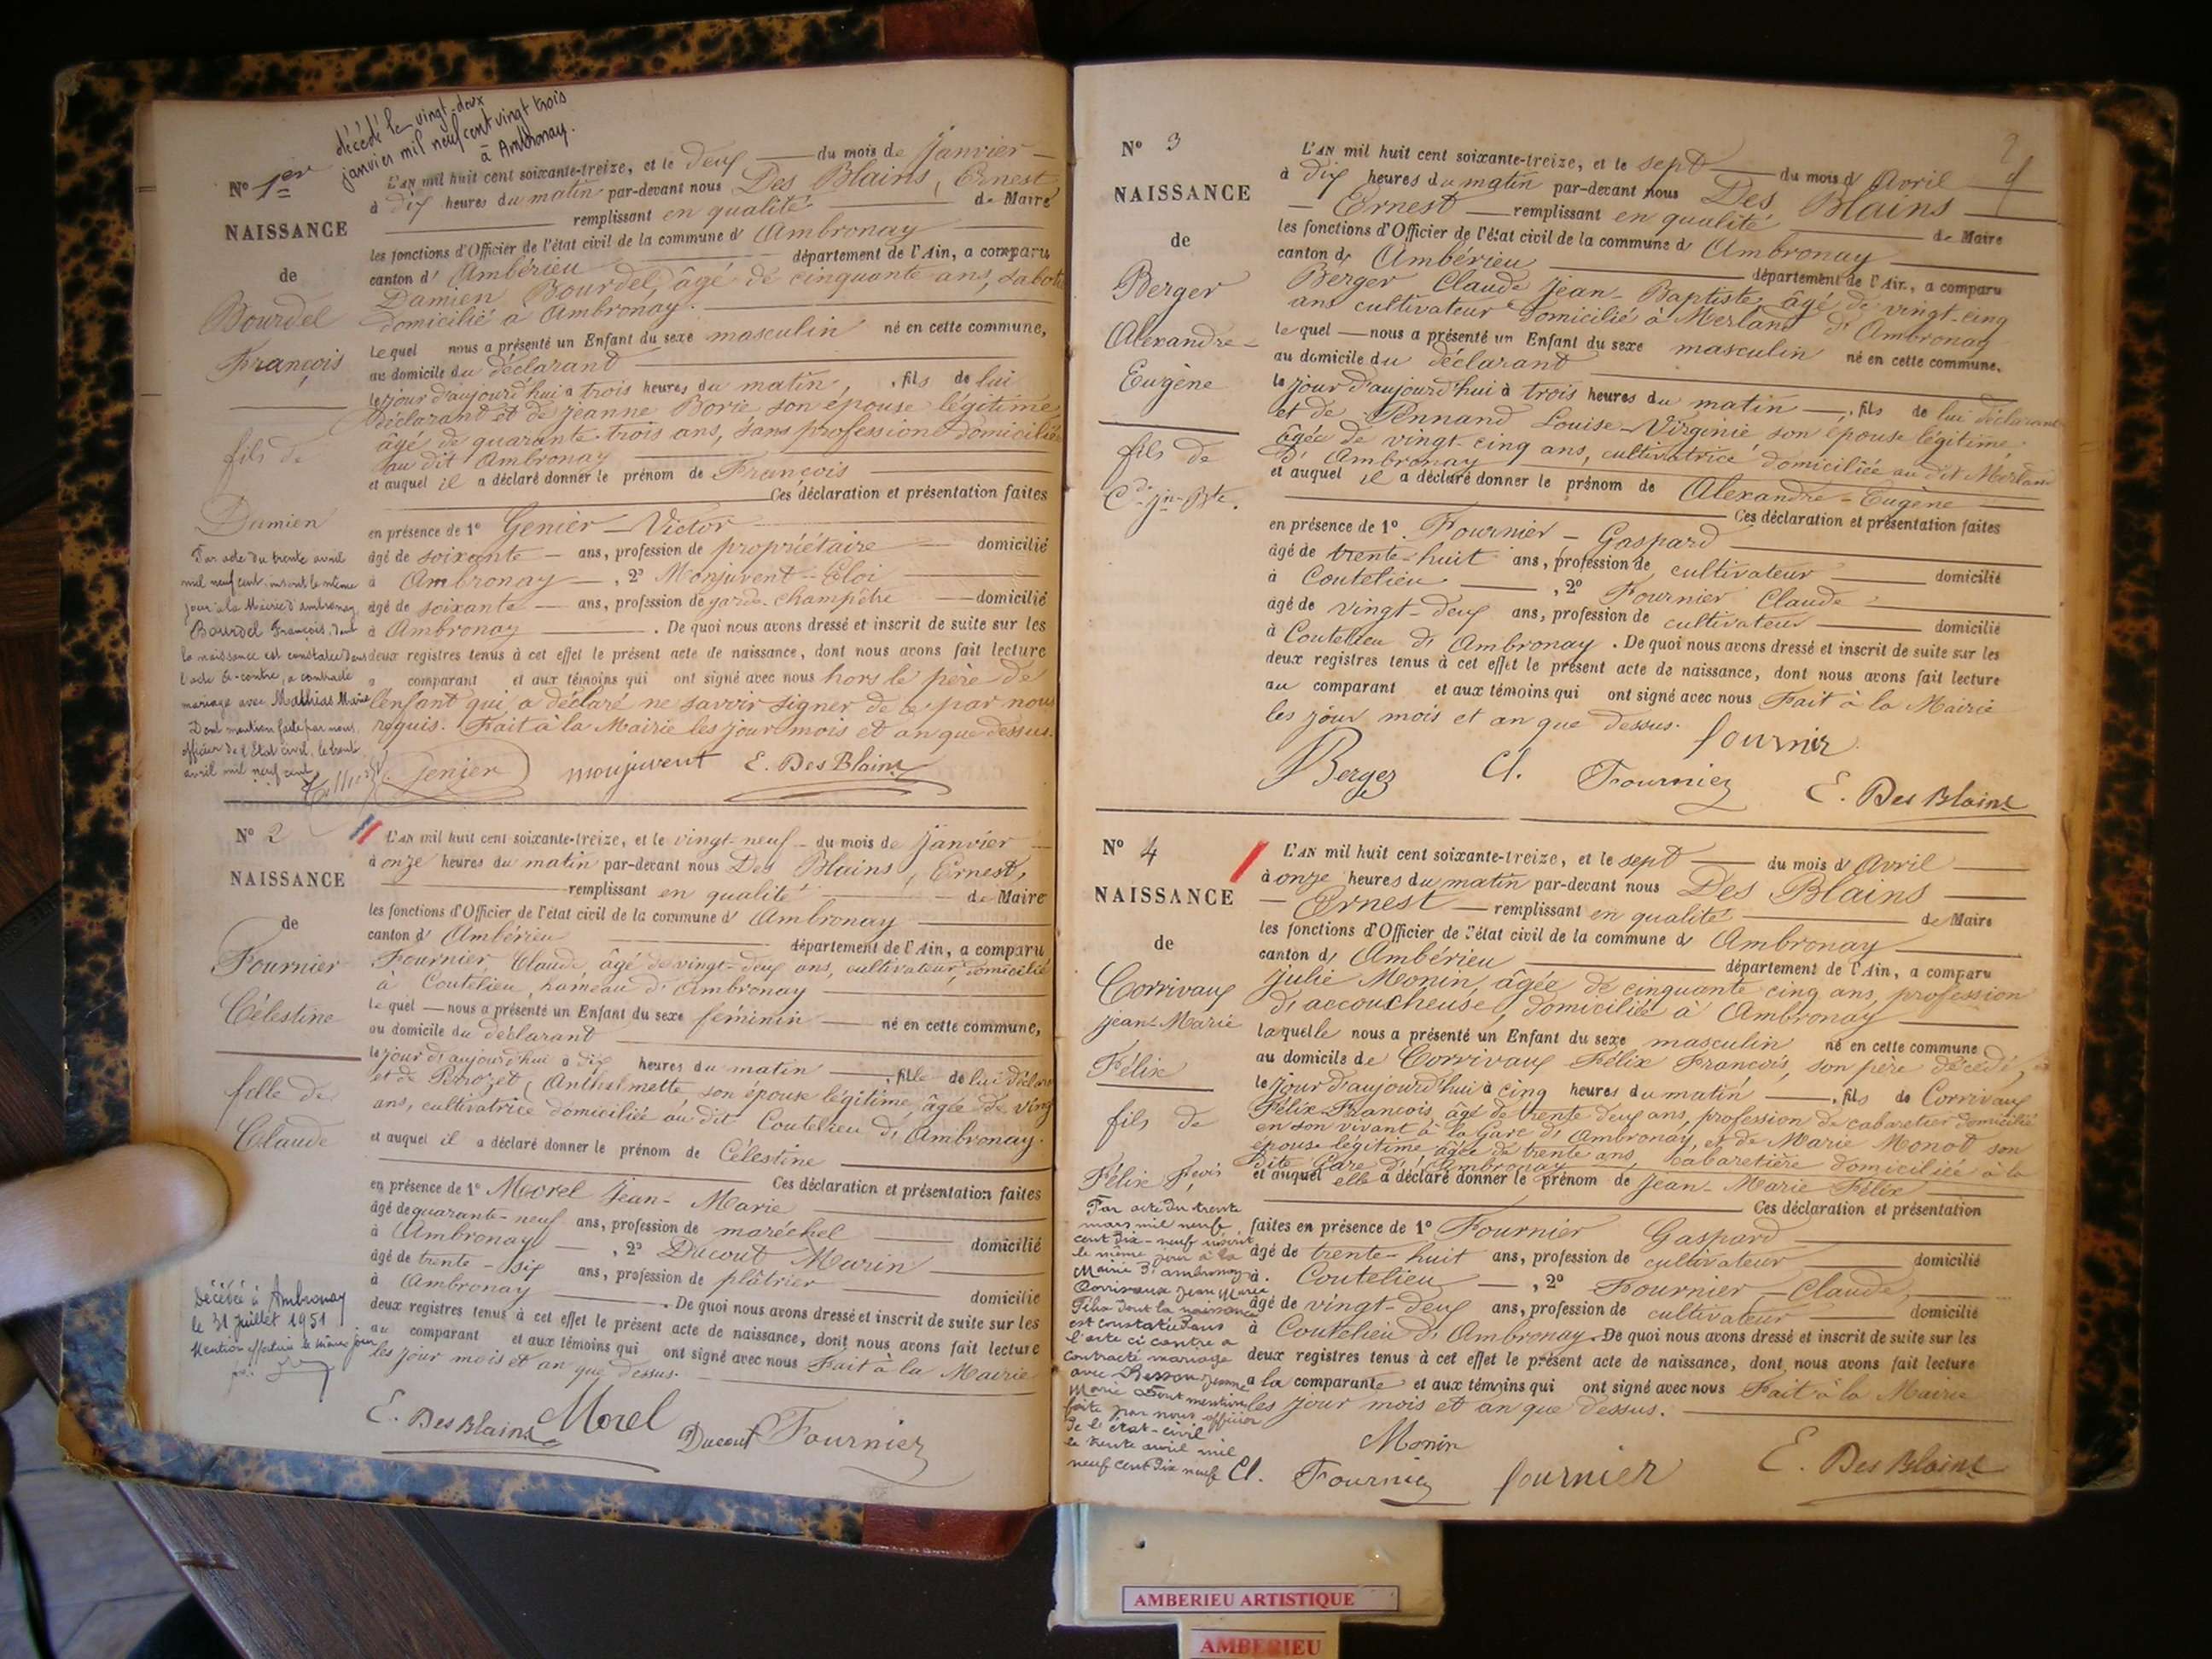 décédé le vingt-deux
janvier mil neuf cent vingt trois
à Ambronay.
N° 1er
NAISSANCE
de
Bourdel
François
fils de
Damien
Par acte du trente avril
mil neuf cent inscrit le même
jour à la Mairie d'Ambronay,
Bourdel François, dont
la naissance est constatée dans
l'acte ci-contre, a contracté
mariage avec Mathias Marie
Dont mention faite par nous,
officier de l'Etat civil, le trente
avril mil neuf cent.
L'AN mil huit cent soixante-treize, et le deux du mois de janvier
à dix heures du matin par-devant nous Des Blains, Ernest
remplissant en qualité de Maire
les fonctions d'Officier de l'état civil de la commune d' Ambronay
canton d' Ambérieu département de l'Ain, a comparu
Damien Bourdel, âgé de cinquante ans, sabotier
domicilié à Ambronay.
Lequel nous a présenté un Enfant du sexe masculin né en cette commune,
au domicile du déclarant
le jour d'aujourd'hui à trois heures du matin, fils de lui
déclarant et de Jeanne Borie son épouse légitime,
âgé de quarante-trois ans, sans profession domiciliée
au dit Ambronay
et auquel il a déclaré donner le prénom de François
Ces déclaration et présentation faites
en présence de 1° Genier Victor
âgé de soixante ans, profession de propriétaire domicilié
à Ambronay, 2° Monjuvent Eloi
âgé de soixante ans, profession de garde-champêtre domicilié
à Ambronay. De quoi nous avons dressé et inscrit de suite sur les
deux registres tenus à cet effet le présent acte de naissance, dont nous avons fait lecture
comparant et aux témoins qui ont signé avec nous hors le père de
l'enfant qui a déclaré ne savoir signer de ce par nous
requis. Fait à la Mairie les jour mois et an que dessus.
Genier monjuvent E. Des Blains
N° 2
NAISSANCE
de
Fournier
Célestine
fille de
Claude
Décédée à Ambronay
le 31 juillet 1951
Mention effectuée le même jour
L'AN mil huit cent soixante-treize, et le vingt-neuf du mois de janvier
à onze heures du matin par-devant nous Des Blains, Ernest,
remplissant en qualité de Maire
les fonctions d'Officier de l'état civil de la commune d' Ambronay
canton d' Ambérieu département de l'Ain, a comparu
Fournier Claude âgé de vingt-deux ans, cultivateur, domicilié
à Coutelieu, hameau d'Ambronay
Lequel nous a présenté un Enfant du sexe féminin né en cette commune,
au domicile du déclarant
le jour d'aujourd'hui à dix heures du matin, fille de lui déclarant
et de Perrozet, Anthelmette, son épouse légitime, âgée de vingt
ans, cultivatrice domiciliée au dit Coutelieu d'Ambronay.
et auquel il a déclaré donner le prénom de Célestine
Ces déclaration et présentation faites
en présence de 1° Morel Jean-Marie
âgé de quarante-neuf ans, profession de maréchel domicilié
à Ambronay, 2° Ducout Marin
âgé de trente-six ans, profession de plâtrier domicilié
à Ambronay. De quoi nous avons dressé et inscrit de suite sur les
deux registres tenus à cet effet le présent acte de naissance, dont nous avons fait lecture
au comparant et aux témoins qui ont signé avec nous Fait à la Mairie
les jour mois et an que dessus.
E. Des Blains Morel Ducout Fournier
2
N° 3
NAISSANCE
de
Berger
Alexandre-
Eugène
fils de
Cde Jn-Bte.
L'AN mil huit cent soixante-treize, et le sept du mois d'Avril
à dix heures du matin par-devant nous Des Blains
Ernest remplissant en qualité de Maire
les fonctions d'Officier de l'état civil de la commune d' Ambronay
canton d' Ambérieu département de l'Ain, a comparu
Berger Claude Jean-Baptiste, âgé de vingt-cinq
ans cultivateur domicilié à Merland d'Ambronay
lequel nous a présenté un Enfant du sexe masculin né en cette commune,
au domicile du déclarant
le jour d'aujourd'hui à trois heures du matin, fils de lui déclarant
et de Pennand Louise-Virginie, son épouse légitime,
âgée de vingt-cinq ans, cultivatrice domiciliée au dit Merland
d'Ambronay
et auquel il a déclaré donner le prénom de Alexandre-Eugène
Ces déclaration et présentation faites
en présence de 1° Fournier - Gaspard
âgé de trente-huit ans, profession de cultivateur domicilié
à Coutelieu, 2° Fournier Claude
âgé de vingt-deux ans, profession de cultivateur domicilié
à Coutelieu d'Ambronay. De quoi nous avons dressé et inscrit de suite sur les
deux registres tenus à cet effet le présent acte de naissance, dont nous avons fait lecture
au comparant et aux témoins qui ont signé avec nous Fait à la Mairie
les jour mois et an que dessus. fournier
Berger Cl. Fournier E. Des Blains
N° 4
NAISSANCE
de
Corrivaux
Jean-Marie
Félix
fils de
Félix Fçois
Par acte du trente
mars mil neuf
cent dix-neuf inscrit
le même jour à la
Mairie d'Ambronay
Corrivaux Jean Marie
Félix dont la naissance
est constatée dans
l'acte ci contre a
contracté mariage
avec Besson Jeanne
Marie Dont mention
faite par nous officier
de l'état-civil
le trente avril mil
neuf cent dix neuf
L'AN mil huit cent soixante-treize, et le sept du mois d'Avril
à onze heures du matin par-devant nous Des Blains
Ernest remplissant en qualité de Maire
les fonctions d'Officier de l'état civil de la commune d' Ambronay
canton d' Ambérieu département de l'Ain, a comparu
Julie Monin, âgée de cinquante cinq ans, profession
d'accoucheuse, domiciliée à Ambronay
laquelle nous a présenté un Enfant du sexe masculin né en cette commune
au domicile de Corrivaux Félix François, son père décédé,
le jour d'aujourd'hui à cinq heures du matin, fils de Corrivaux
Félix-François, âgé de trente deux ans, profession de cabaretier domicilié
en son vivant à la Gare d'Ambronay, et de Marie Monod son
épouse légitime âgée de trente ans, cabaretière domiciliée à la
dite Gare d'Ambronay
et auquel elle a déclaré donner le prénom de Jean-Marie Félix
Ces déclaration et présentation
faites en présence de 1° Fournier Gaspard
âgé de trente-huit ans, profession de cultivateur domicilié
à Coutelieu, 2° Fournier-Claude,
âgé de vingt-deux ans, profession de cultivateur domicilié
à Coutelieu d'Ambronay. De quoi nous avons dressé et inscrit de suite sur les
deux registres tenus à cet effet le présent acte de naissance, dont nous avons fait lecture
a la comparante et aux témoins qui ont signé avec nous Fait à la Mairie
les jour mois et an que dessus.
Monin
Cl. Fournier fournier E. Des Blains
AMBERIEU ARTISTIQUE
AMBERIEU